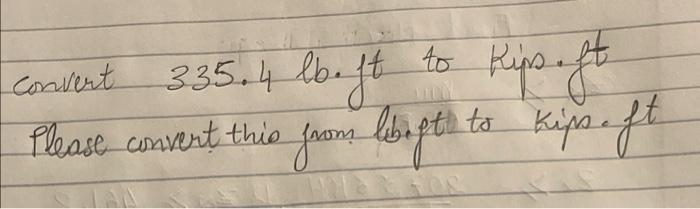 convert 335.4 lb.ft to Kips.ft
Please convert this from lb.ft to Kips.ft